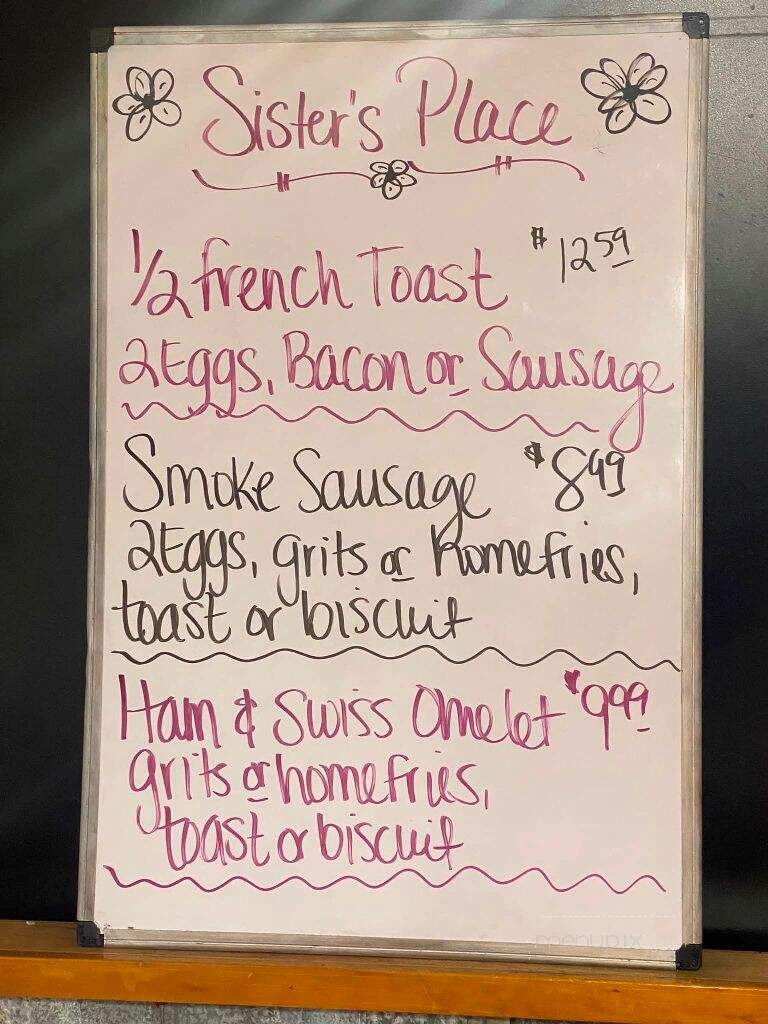 Sister's Place
1/2 french Toast $12.59
2 Eggs, Bacon or Sausage
Smoke Sausage $8.49
2 Eggs, grits or homefries,
toast or biscuit
Ham & Swiss Omelet $9.99
grits or homefries,
toast or biscuit
menupix